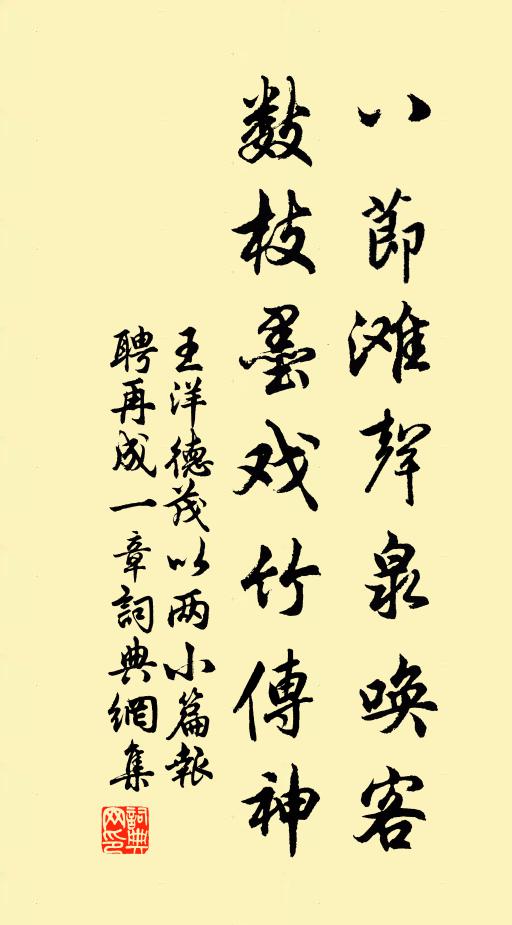 八節滩聲泉唤客
数枝墨戏竹傳神
王洋德茂以两小篇報
聘再成一章詞典網集
詞典网印